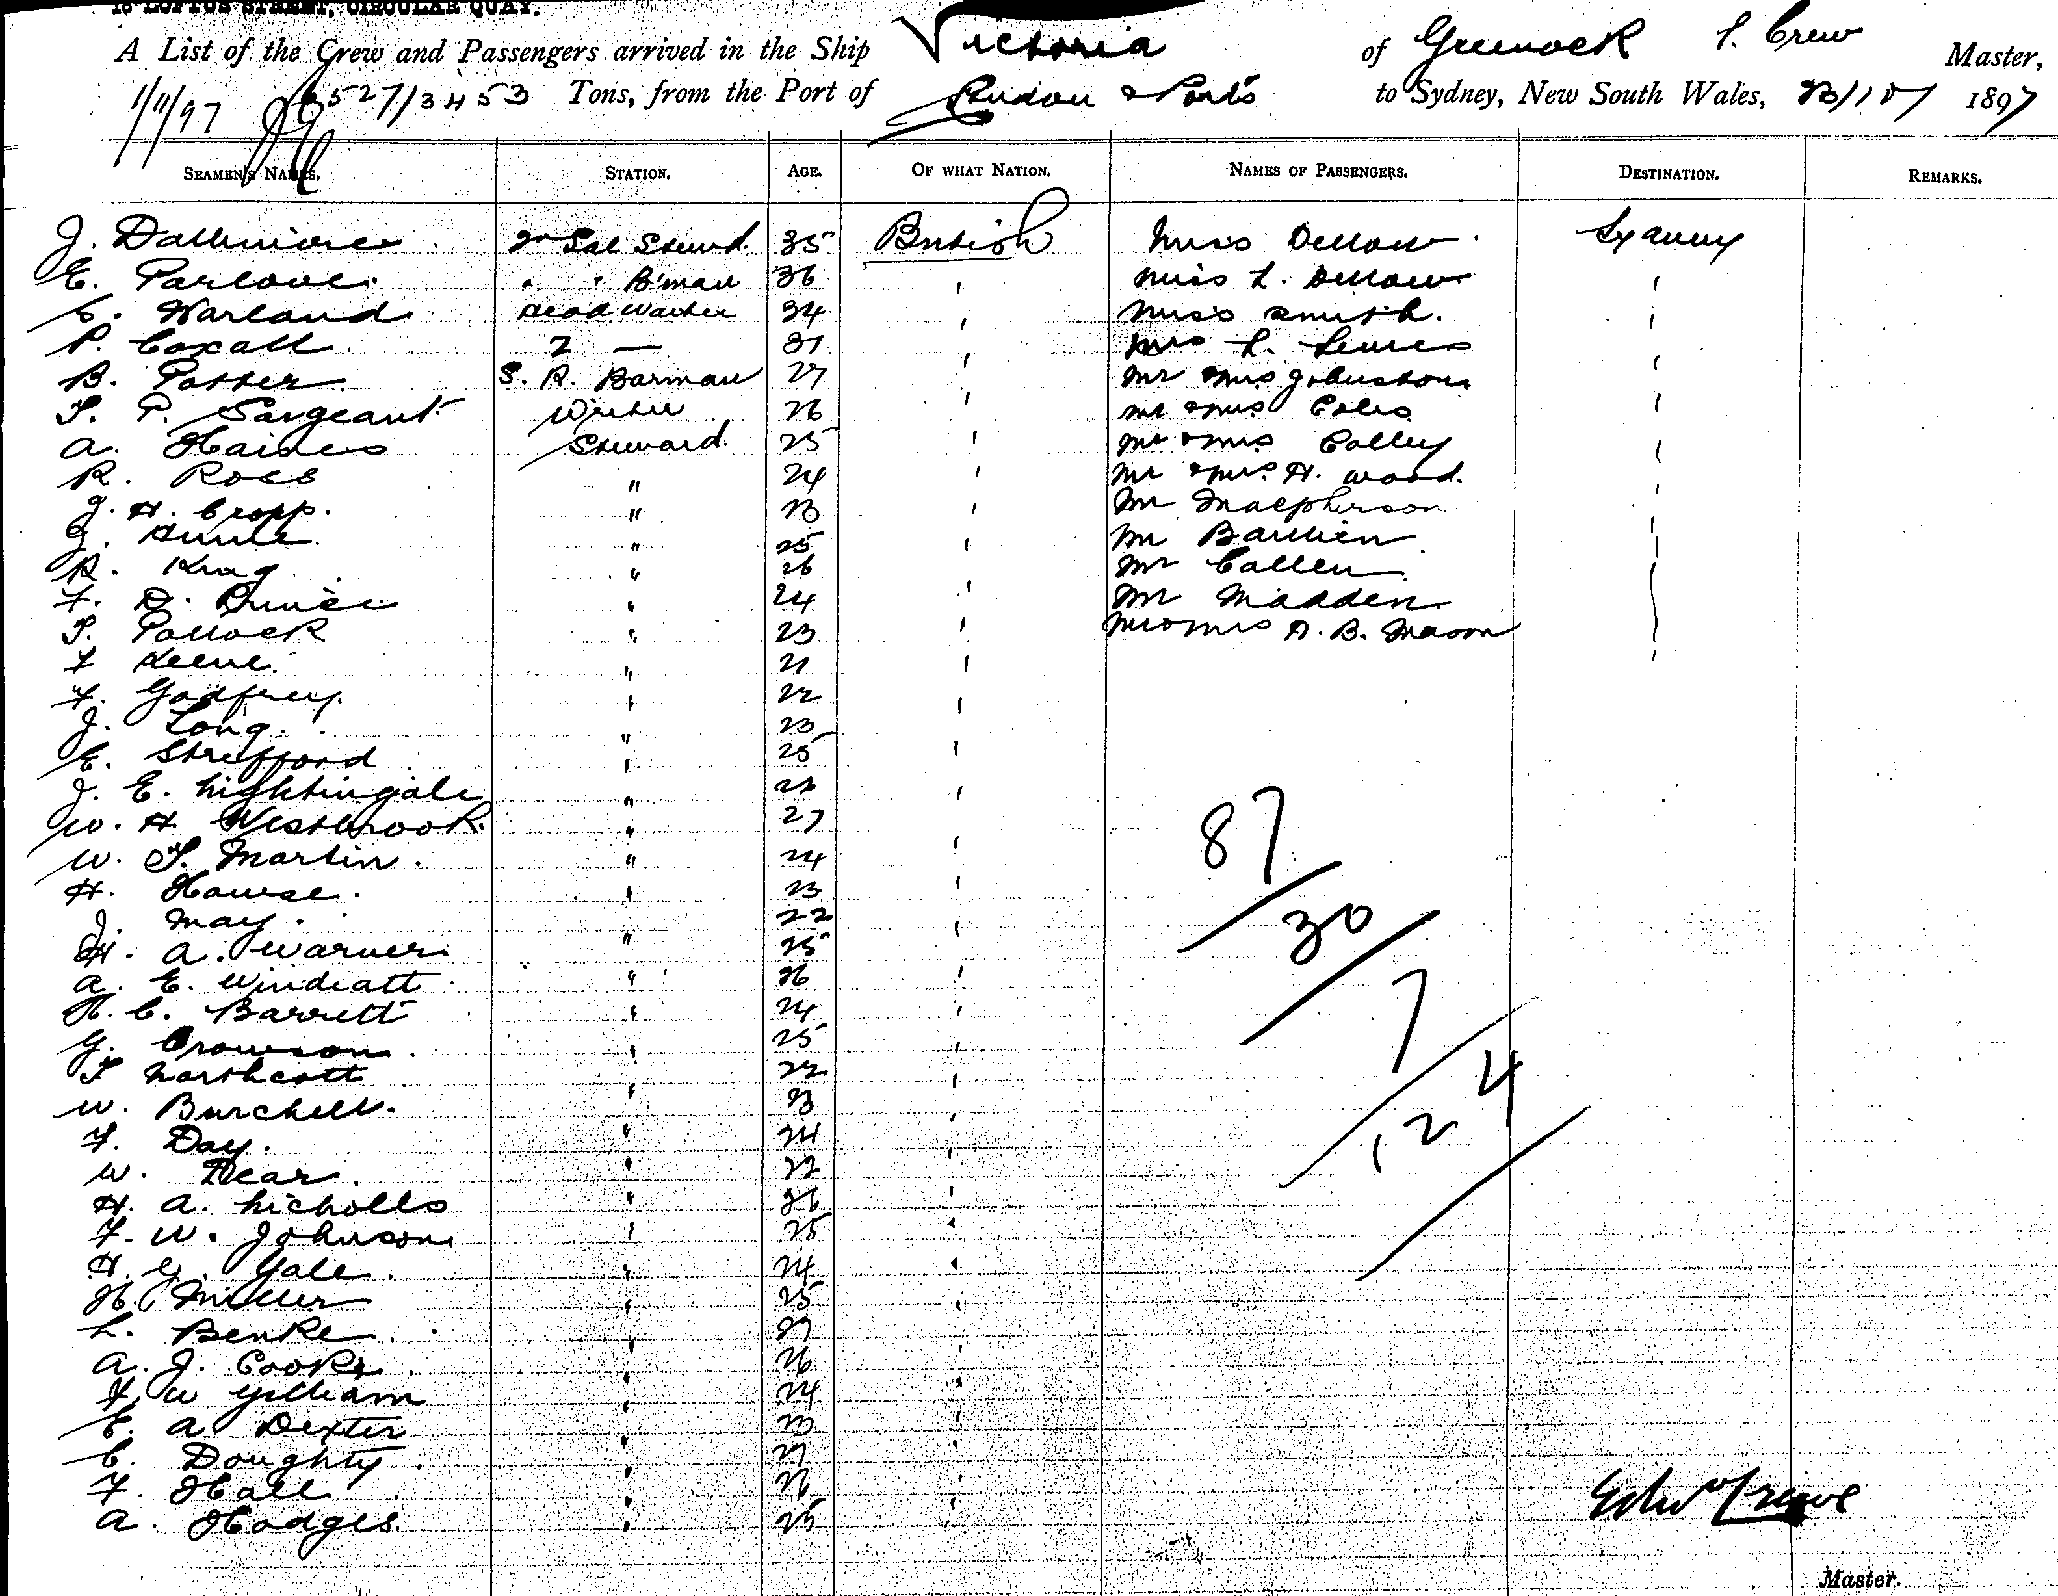 15 LOFTUS STREET, CIRCULAR QUAY.
A List of the Crew and Passengers arrived in the Ship Victoria of Greenock Crew Master,
1/11/97 6527/3453 Tons, from the Port of London & Ports to Sydney, New South Wales, 1897
SEAMEN'S NAMES. STATION. AGE. OF WHAT NATION. NAMES OF PASSENGERS. DESTINATION. REMARKS.
J. Dallimore 2nd Sal Stewd. 35 British Miss Dellow Sydney
E. Parlour " " B'man 36 ' Miss L. Dellow '
C. Harland Head Waiter 34 ' Miss Smith. '
P. Coxall 2 — 31 ' Mrs L. Lewes '
B. Potter S. R. Barman 27 ' Mr & Mrs Johnston '
T. P. Sargeant Writer 26 ' Mr & Mrs Coles '
A. Haines Steward 25 ' Mr & Mrs Colley '
R. Ross " 24 ' Mr & Mrs. H. Wood. '
J. H. Cropp. " 23 ' Mr Macpherson '
J. " 25 ' Mr '
R. King " 26 ' Mr Callen
F. Prince " 24 ' Mr Madden
T. Pollock " 23 ' Mr & Mrs A. B. Mason
F Keene " 21 '
F. Godfrey. " 22 '
J. Long. " 23 '
E. Strefford " 25 '
J. E. Nightingale " '
W. H Westbrook " 27 '
W. T. Martin. " 24 '
H. Howse. " 23 '
J. May. 22 '
H. A. Warner " 25 '
A. E. Windeatt " 26 '
H. C. Barrett " 24 '
G. Crowson " 25 '
T Northcott " 22 '
W. Burchell. " 23 '
F. Day. " 24 '
W. Dear. " 22
H. A. Nicholls " 26 '
F. W. Johnson " 25 '
H. G. Yale. " 24 '
H. Miller " 25 '
L. Benke " 27
A. J. Cooke " 26 '
F W Gilliam " 24 '
E. A Dexter " 23 '
C. Doughty " 27 '
F. Hall " 26
A. Hodges. " 25 '
87
30
7
124
Edw Crewe
Master.